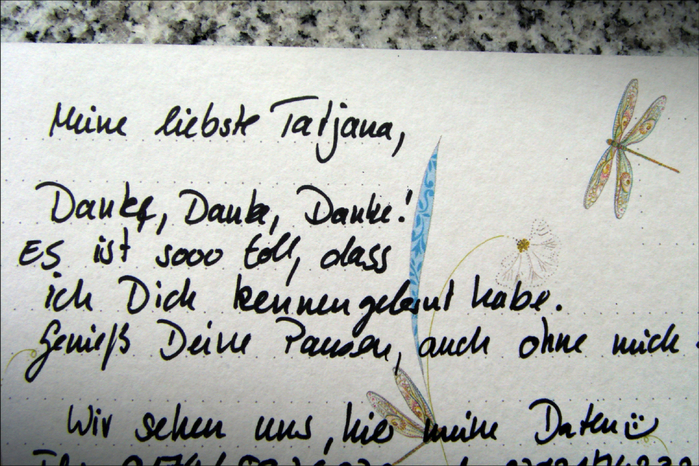 Meine liebste Tatjana,
Danke, Danke, Danke!
ES ist sooo toll, dass
ich Dich kennengelernt habe.
Genieß Deine Pausen, auch ohne mich
Wir sehen uns, hier meine Daten